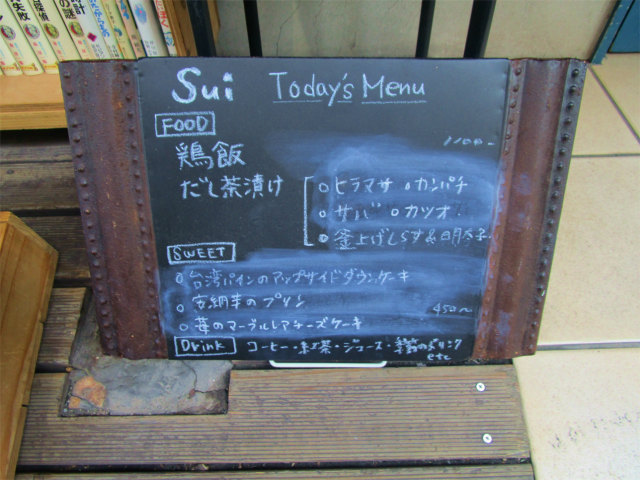 Sui Today's Menu
FOOD
1100~
鶏飯
だし茶漬け
ヒラマサ カンパチ
サバ カツオ
釜上げしらす&明太子
SWEET
台湾パインのアップサイドダウンケーキ
安納芋のプリン
450~
苺のマーブルレアチーズケーキ
Drink コーヒー・紅茶・ジュース・季節のドリンク
etc